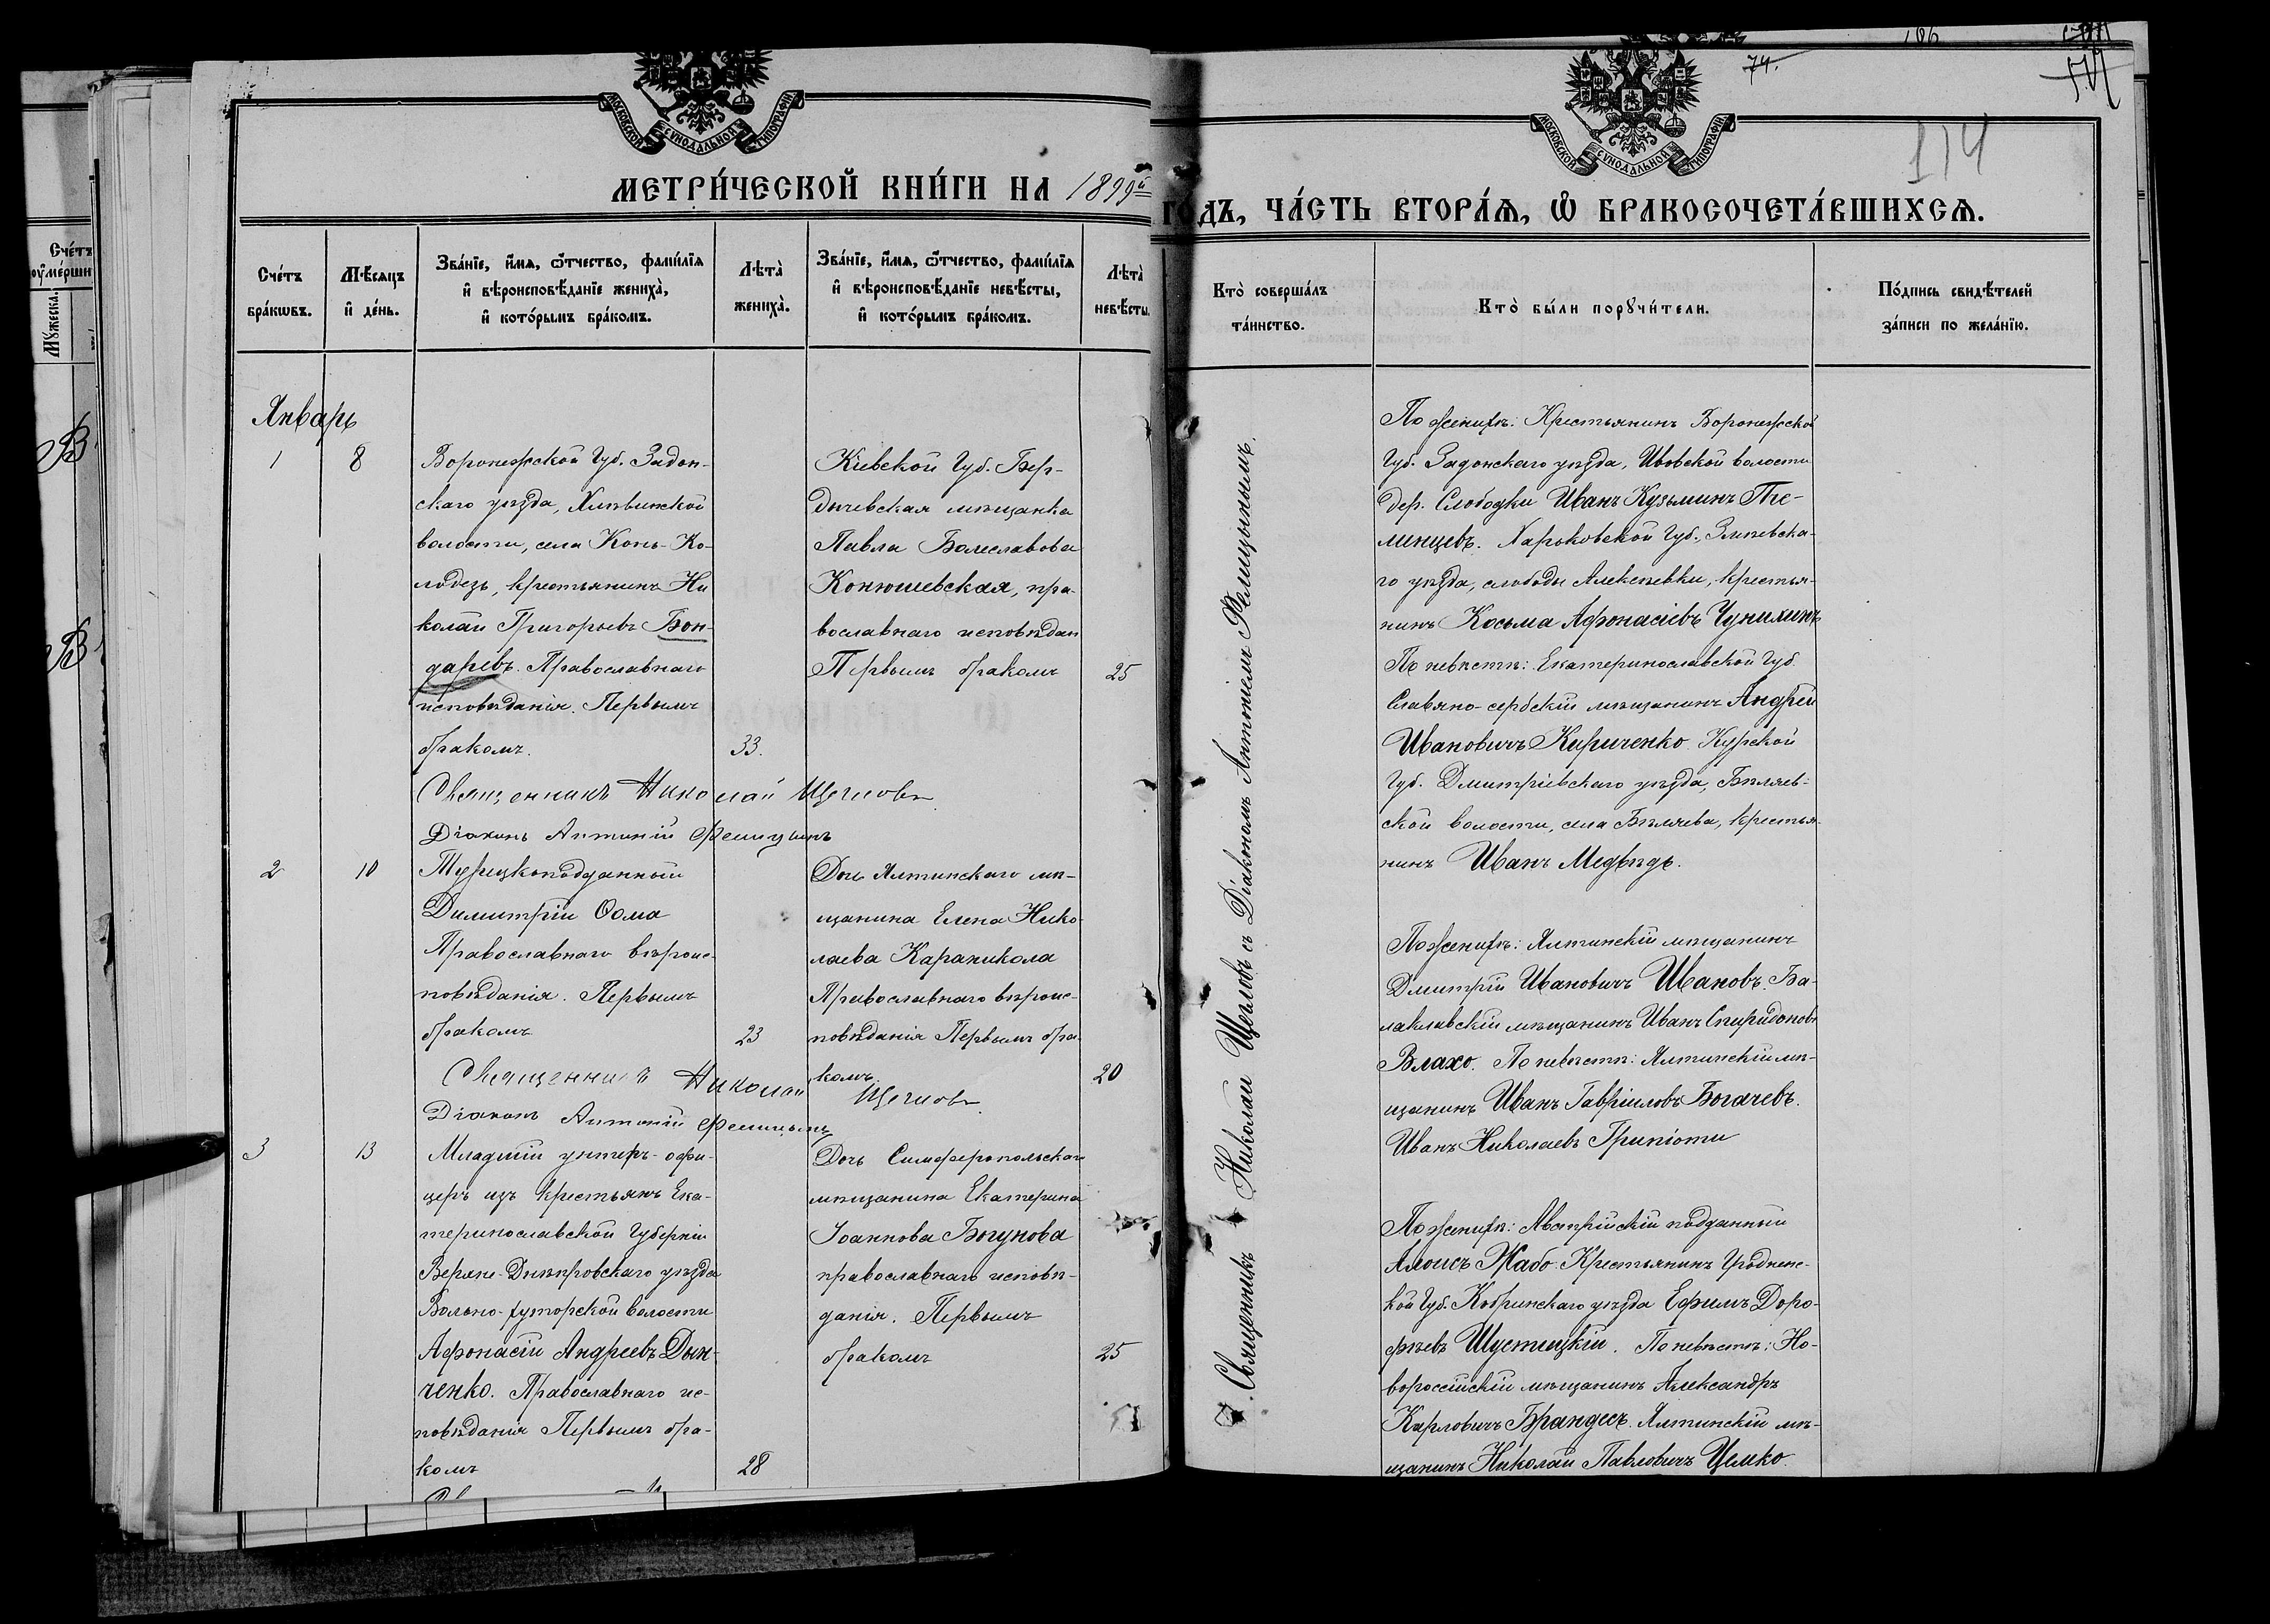 МОСКОВСКОЙ СѴНОДАЛЬНОЙ ТИПОГРАФІИ
МЕТРИ́ЧЕСКОЙ КНИ́ГИ НА 1899й
Сче́тъ бра́кѡвъ.
Мѣ́сяцъ и҆ де́нь.
Зва́нїе, и҆́мя, ѻ҆́тчество, фами́лїя
и҆ вѣроисповѣ́данїе жениха̀,
и҆ кото́рымъ бра́комъ.
Лѣта̀ жениха̀.
Зва́нїе, и҆́мя, ѻ҆́тчество, фами́лїя
и҆ вѣроисповѣ́данїе невѣ́сты,
и҆ кото́рымъ бра́комъ.
Лѣта̀ невѣ́сты.
Январь
1
8
Воронежской Губ. Задон-
скаго уѣзда, Хлѣвинской
волости, села Конь-Ко-
лодезь, крестьянинъ Ни
колай Григорьевъ Бон-
даревъ. Православнаго
исповѣданія. Первымъ
бракомъ.
33.
Кіевской Губ. Бер-
дичевская мѣщанка
Павла Болеславова
Конюшевская, пра-
вославнаго исповѣдан
Первымъ бракомъ
25
Священникъ Николай Щегловъ
Діаконъ Антоній Фелицынъ
2
10
Турецкоподданный
Димитрій Ѳома
Православнаго вѣроис-
повѣданія. Первымъ
бракомъ
23
Дочь Ялтинскаго мѣ-
щанина Елена Нико-
лаева Караникола
Православнаго вѣроис-
повѣданія Первымъ бра-
комъ
20
Священникъ Николай Щегловъ
Діаконъ Антоній Фелицынъ
3
13
Младшій унтеръ-офи-
церъ изъ крестьянъ Ека-
теринославской Губерніи
Верхне-Днѣпровскаго уѣзда
Вольно-хуторской волости
Афонасій Андреевъ Дын-
ченко. Православнаго ис-
повѣданія Первымъ бра-
комъ
28
Дочь Симферопольскаго
мѣщанина Екатерина
Іоаннова Богунова
православнаго исповѣ-
данія. Первымъ
бракомъ
25
74.
114
МОСКОВСКОЙ СѴНОДАЛЬНОЙ ТИПОГРАФІИ
ГО́ДЪ, ЧА́СТЬ ВТОРА́Я, Ѽ БРАКОСОЧЕТА́ВШИХСЯ.
Кто̀ соверша́лъ
та́инство.
Кто̀ бы́ли порꙋчи́тели.
По́дпись свидѣ́телей
за́писи по жела́нїю.
Священникъ Николай Щегловъ съ Діакономъ Антоніемъ Фелицынымъ.
По женихѣ: Крестьянинъ Воронежской
Губ. Задонскаго уѣзда, Ивовской волости
дер. Слободки Иванъ Кузьминъ Пче-
линцевъ. Харьковской Губ. Зміевска-
го уѣзда, слободы Алексѣевки, крестья-
нинъ Косьма Афонасіевъ Чунихинъ
По невѣстѣ: Екатеринославской Губ.
Славяно-сербскій мѣщанинъ Андрей
Ивановичъ Кириченко. Курской
Губ. Дмитріевскаго уѣзда, Бѣляев-
ской волости, села Бѣляева, крестья-
нинъ Иванъ Медвѣдь.
По женихѣ: Ялтинскій мѣщанинъ
Дмитрій Ивановичъ Ивановъ. Ба-
лаклавскій мѣщанинъ Иванъ Спиридоновъ
Влахо. По невѣстѣ: Ялтинскій мѣ-
щанинъ Иванъ Гавріиловъ Богачевъ.
Иванъ Николаевъ Грипіоти
По женихѣ: Австрійскій подданный
Алоисъ Жабо. Крестьянинъ Гродненс-
кой Губ. Кобринскаго уѣзда Ефимъ Доро-
фѣевъ Шустицкій. По невѣстѣ: Но-
вороссійскій мѣщанинъ Александръ
Карловичъ Брандесъ. Ялтинскій мѣ-
щанинъ Николай Павловичъ Цемко.
Сче́тъ
Мꙋ́жеска.